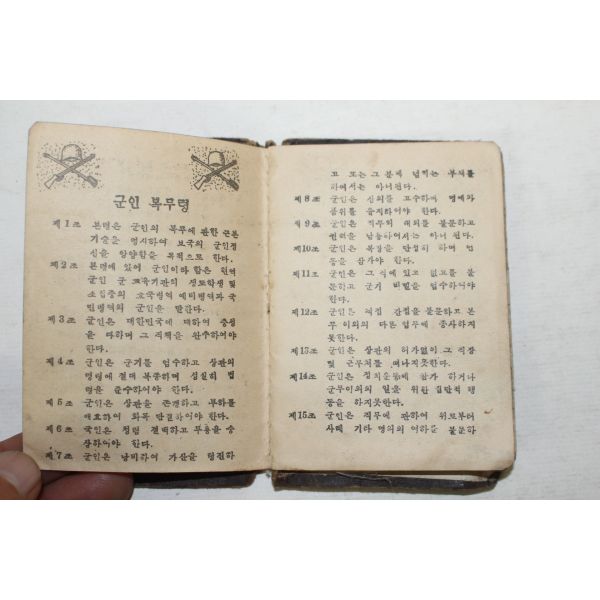 군인 복무령
제1조 본령은 군인의 복무에 관한 근본
기준을 명시하여 보국의 군인정
신을 앙양함을 목적으로 한다.
제2조 본령에 있어 군인이라 함은 현역
군인 군 교육기관의 생도학생 및
소집중의 호국병역 예비병역과 국
민병역의 군인을 말한다.
제3조 군인은 대한민국에 대하여 충성
을 다하며 그 직책을 완수하여야
한다.
제4조 군인은 군기를 엄수하고 상관의
명령에 절대 복종하며 성실히 법
령을 준수하여야 한다.
제5조 군인은 상관을 존경하고 부하를
애호하여 화목 단결하여야 한다.
제6조 군인은 청렴 결백하고 무용을 숭
상하여야 한다.
제7조 군인은 낭비하여 가산을 탕진하
고 또는 그 분에 넘치는 부채를
하여서는 아니된다.
제8조 군인은 신의를 고수하며 명예와
품위를 유지하여야 한다.
제9조 군인은 직무의 내외를 불문하고
권력을 남용하여서는 아니 된다.
제10조 군인은 복장을 단정히 하며 언
동을 삼가야 한다.
제11조 군인은 그 직에 있고 없고를 불
문하고 군기 비밀을 엄수하여야
한다.
제12조 군인은 직접 간접을 불문하고 본
무 이외의 다른 업무에 종사하지
못한다.
제13조 군인은 상관의 허가없이 그 직장
및 근무처를 떠나지못한다.
제14조 군인은 정치운동에 참가 하거나
군무이외의 일을 위한 집단적 행
동을 하지못한다.
제15조 군인은 직무에 관하여 위로부터
사례 기타 명의의 여하를 불문하